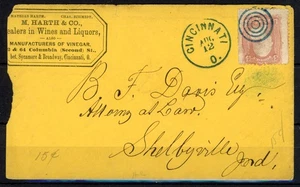 MATHIAS HARTH. CHAS. BOEHMER.
M. HARTH & CO.,
ealers in Wines and Liquors,
ALSO
MANUFACTURERS OF VINEGAR,
& 64 Columbia (Second) St.,
Bet. Sycamore & Broadway, Cincinnati, O.
CINCINNATI
O.
AUG.
12
B. F. Davis Esq.
Attorney at Law.
Shelbyville
Ind.
15¢